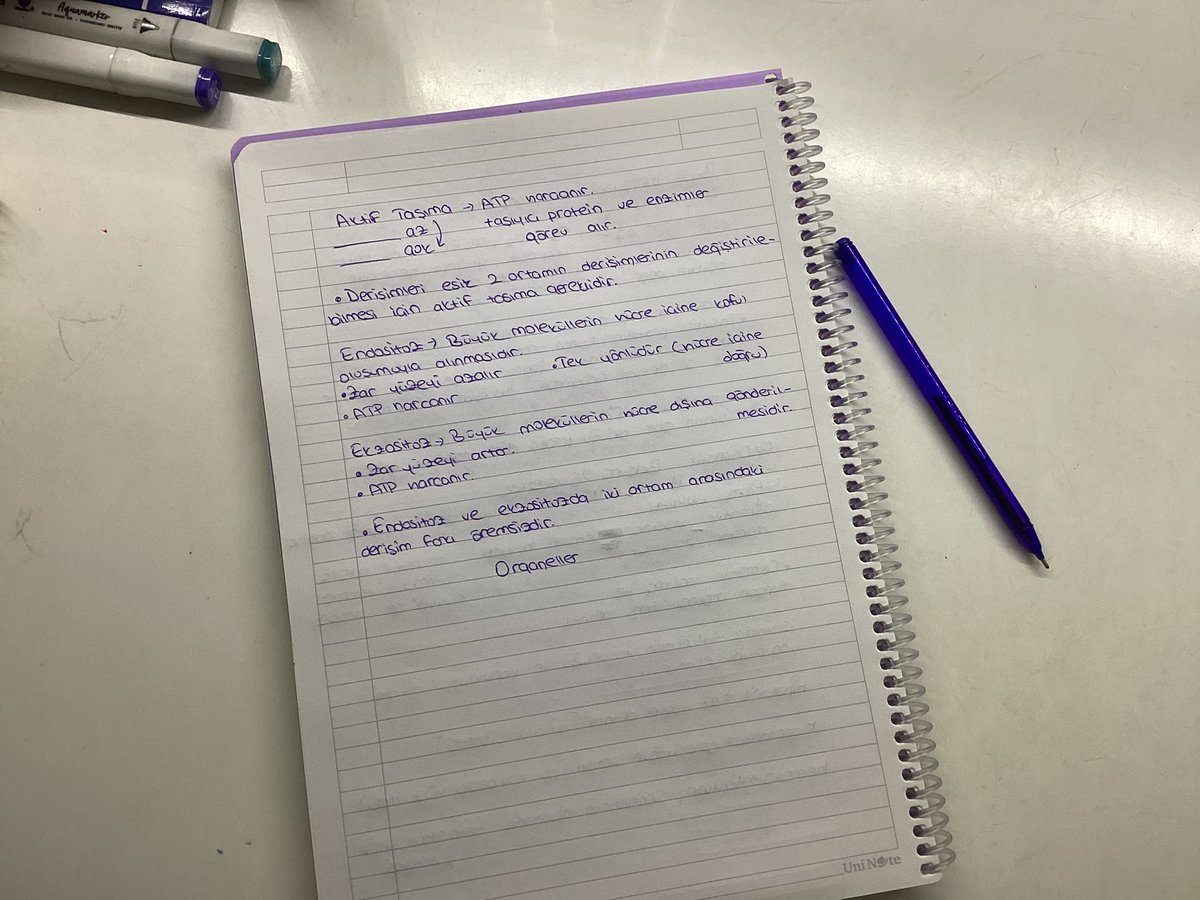 Aquamarker
Aktif Taşıma → ATP harcanır.
az taşıyıcı protein ve enzimler
çok görev alır.
• Derişimleri eşit 2 ortamın derişimlerinin değiştirile-
bilmesi için aktif taşıma gereklidir.
Endositoz → Büyük moleküllerin hücre içine koful
oluşumuyla alınmasıdır.
• Zar yüzeyi azalır • Tek yönlüdür (hücre içine
doğru)
• ATP harcanır
Ekzositoz → Büyük moleküllerin hücre dışına gönderil-
mesidir.
• Zar yüzeyi artar.
• ATP harcanır.
• Endositoz ve ekzositozda iki ortam arasındaki
derişim farkı önemsizdir.
Organeller
Uni Note